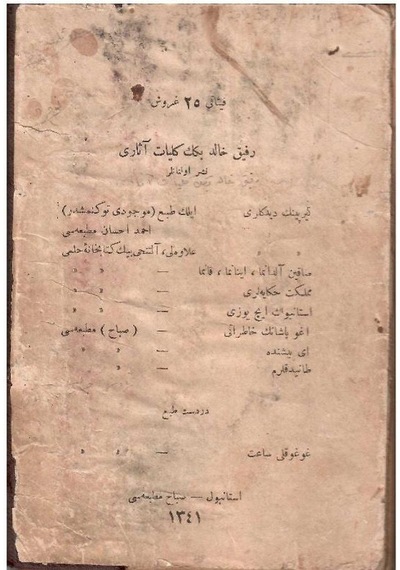 فیئاتی ٢٥ غروش
رفیق خالد بكك كلیات آثاری
نشر اولنانلر
كیرپینك دیدكلری ایلك طبع (موجودی توكنمشدر)
احمد احسان مطبعه‌سی
» » علاوه‌لی، آلتنجی بیك كتابخانهٔ حلمی
صاقین آلدانما، اینانما، قانما — » »
مملكت حكایه‌لری — » »
استانبولك ایچ یوزی — » »
اغو پاشانك خاطراتی — (صباح) مطبعه‌سی
آی پیشنده — » »
طانیدقلرم — » »
دردست طبع
غوغوقلی ساعت — » »
استانبول — صباح مطبعه‌سی
١٣٤١